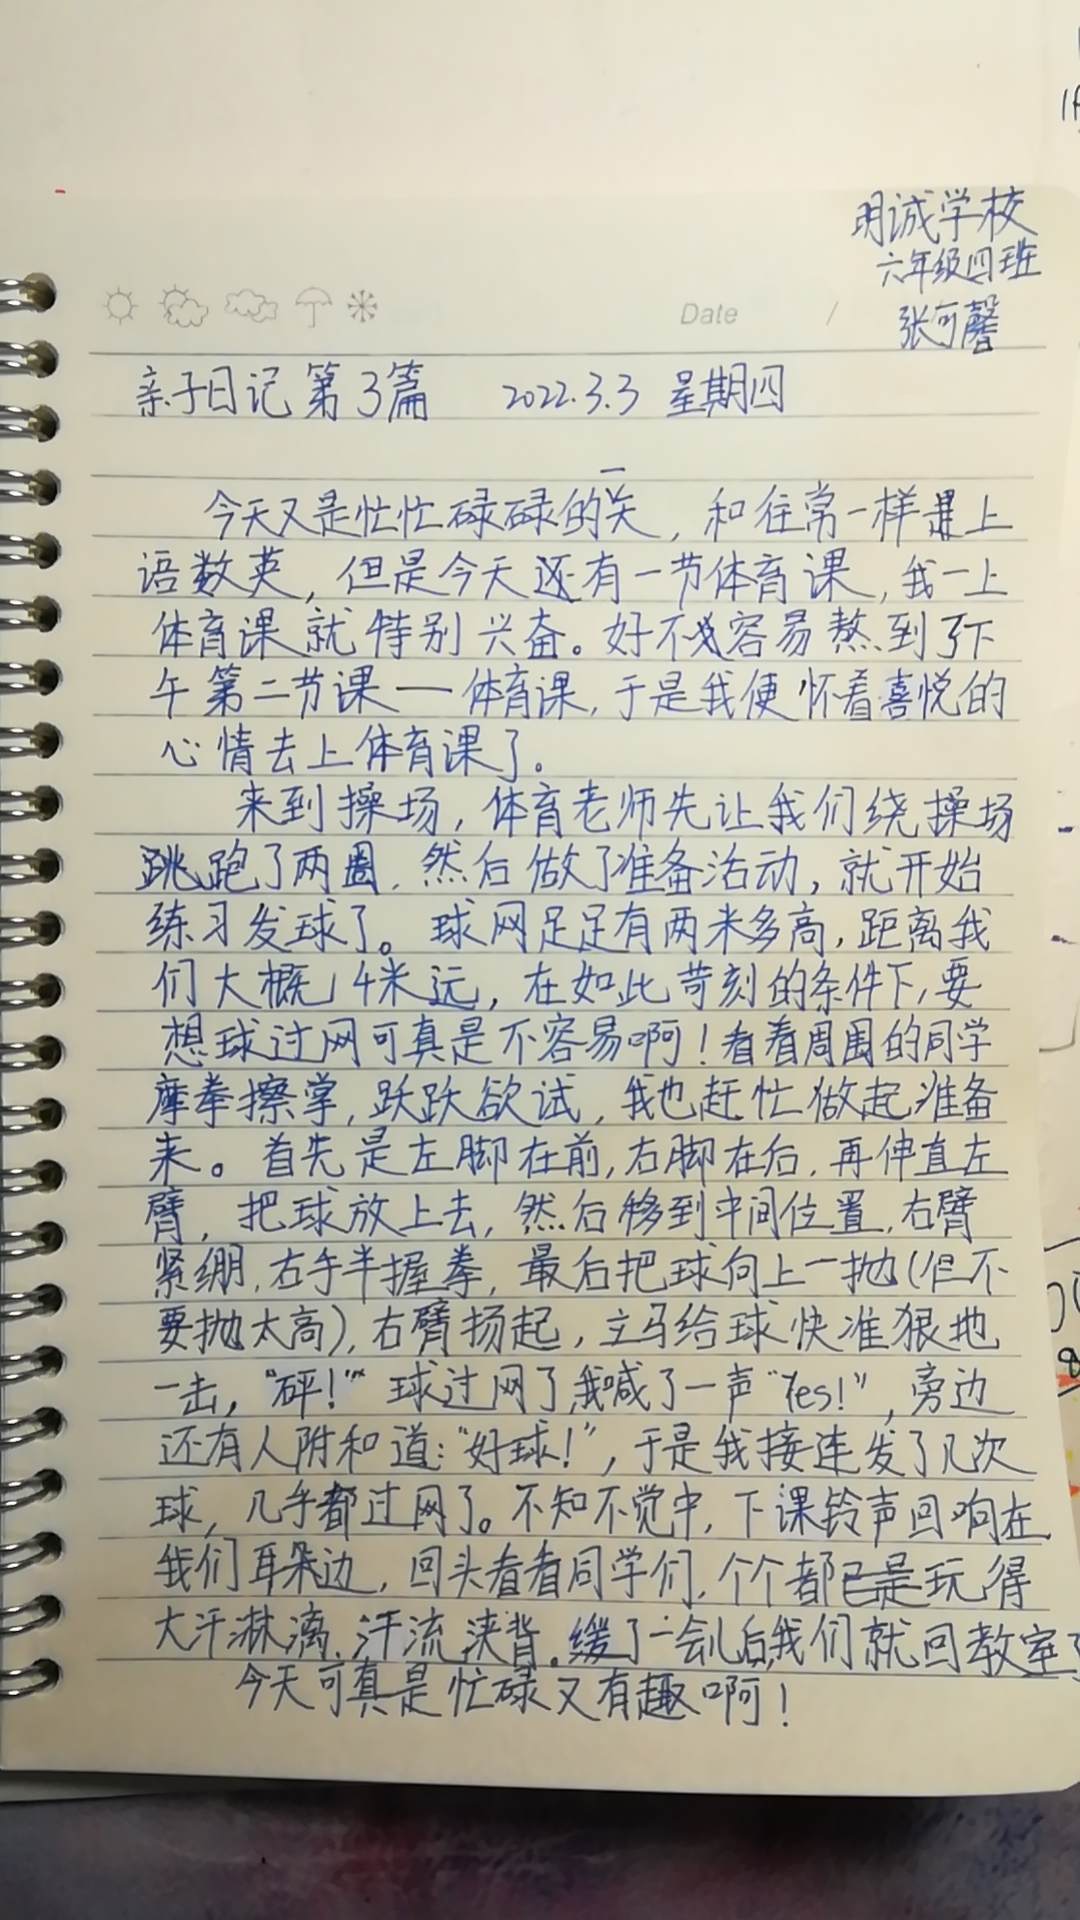 明诚学校
六年级四班
张可馨
Date /
亲子日记第3篇 2022.3.3 星期四
今天又是忙忙碌碌的一天，和往常一样是上
语数英，但是今天还有一节体育课，我一上
体育课就特别兴奋。好不容易熬到了下
午第二节课——体育课，于是我便怀着喜悦的
心情去上体育课了。
来到操场，体育老师先让我们绕操场
跳跑了两圈，然后做了准备活动，就开始
练习发球了。球网足足有两米多高，距离我
们大概14米远，在如此苛刻的条件下，要
想球过网可真是不容易啊！看着周围的同学
摩拳擦掌，跃跃欲试，我也赶忙做起准备
来。首先是左脚在前，右脚在后，再伸直左
臂，把球放上去，然后移到中间位置，右臂
紧绷，右手半握拳，最后把球向上一抛（但不
要抛太高），右臂扬起，立马给球快准狠地
一击，“砰！”球过网了，我喊了一声“Yes！”，旁边
还有人附和道：“好球！”，于是我接连发了几次
球，几乎都过网了。不知不觉中，下课铃声回响在
我们耳朵边，回头看看同学们，个个都已是玩得
大汗淋漓、汗流浃背。缓了一会儿后，我们就回教室了
今天可真是忙碌又有趣啊！